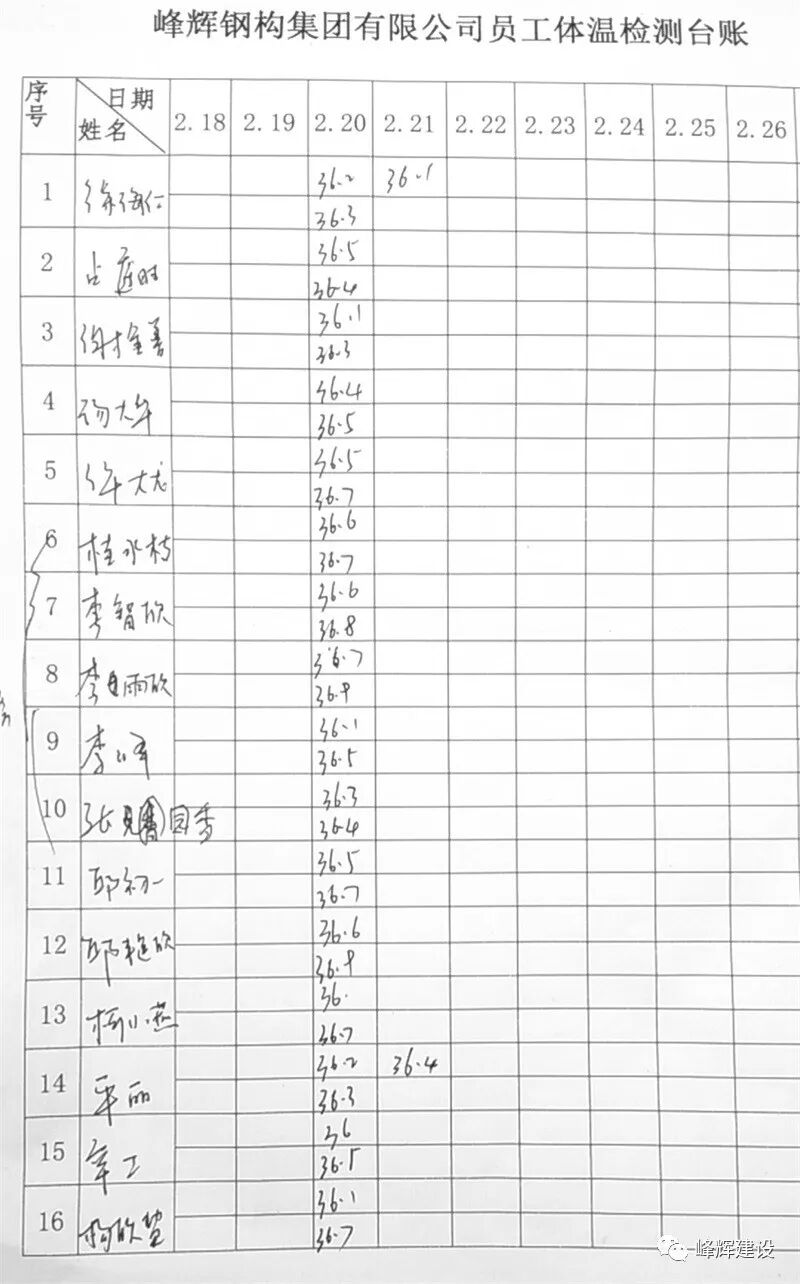 峰辉钢构集团有限公司员工体温检测台账
序号 日期 姓名 2.18 2.19 2.20 2.21 2.22 2.23 2.24 2.25 2.26
1 徐海仁 36.2 36.1
36.3
2 占庭时 36.5
36.4
3 谢金善 36.1
36.3
4 杨大年 36.4
36.5
5 36.5
36.7
6 桂水枝 36.6
36.7
7 李智欣 36.6
36.8
8 李雨欣 36.7
36.9
9 李峰 36.1
36.5
10 张 园香 36.3
36.4
11 邱 36.5
36.7
12 邱 欣 36.6
36.9
13 杨小燕 36.
36.7
14 平丽 36.2 36.4
36.3
15 36
36.5
16 36.1
36.7
峰辉建设